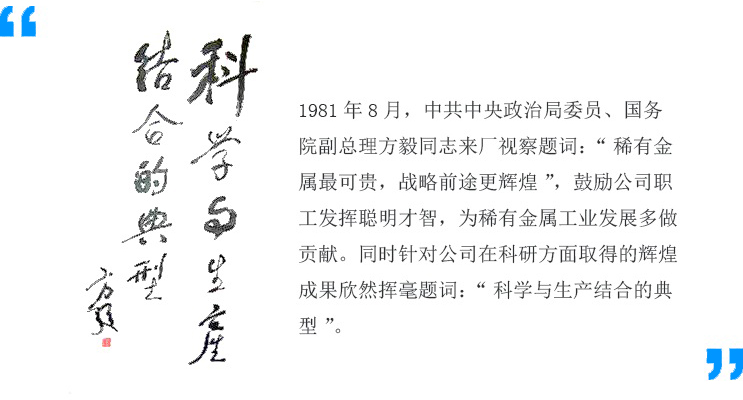 科学与生产
结合的典型
方毅
1981 年 8 月，中共中央政治局委员、国务
院副总理方毅同志来厂视察题词：“ 稀有金
属最可贵，战略前途更辉煌 ”，鼓励公司职
工发挥聪明才智，为稀有金属工业发展多做
贡献。同时针对公司在科研方面取得的辉煌
成果欣然挥毫题词：“ 科学与生产结合的典
型 ”。